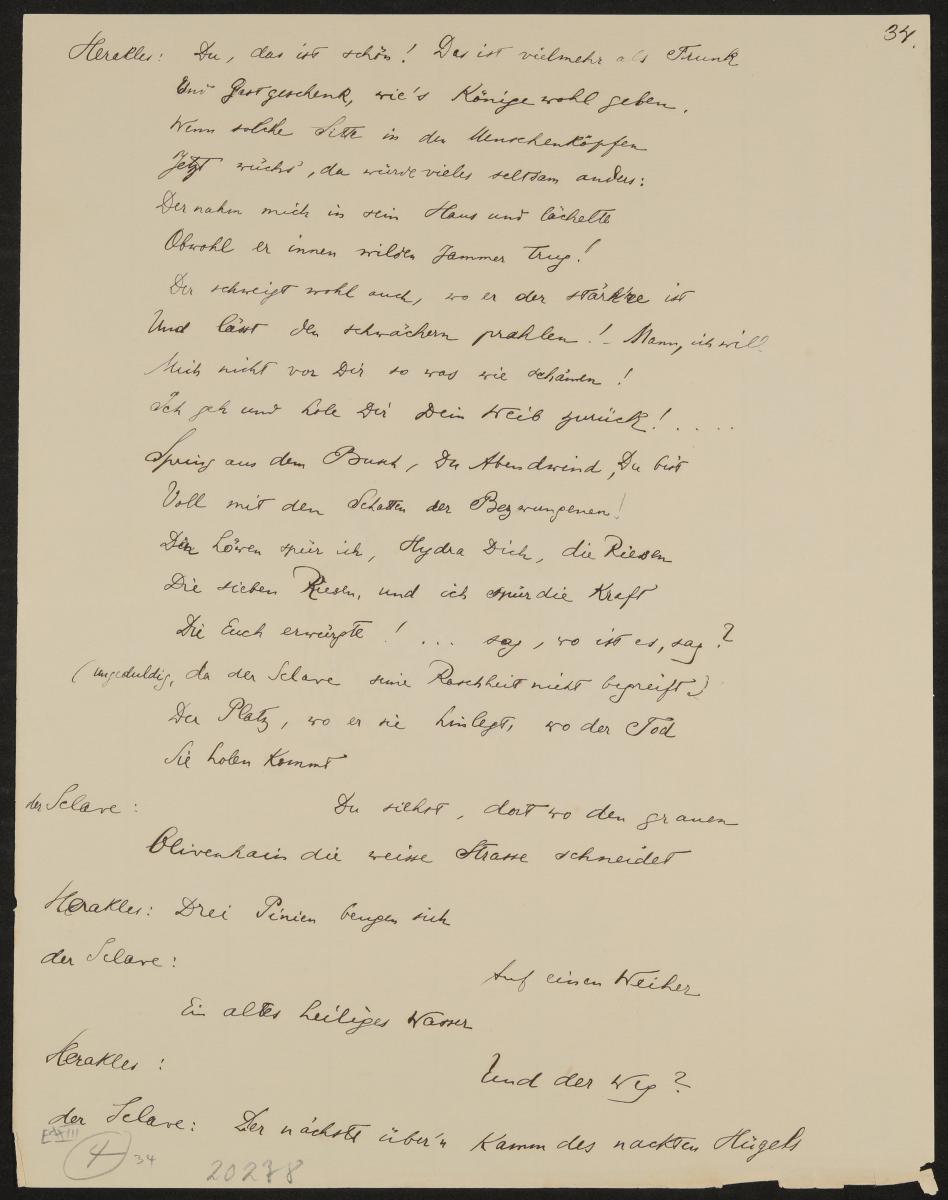 34.
Herakles: Du, das ist schön! Das ist vielmehr als Trunk
Und Gastgeschenk, wie's Könige wohl geben.
Wenn solche Sitte in den Menschenköpfen
Jetzt wüchs', da würde vieles seltsam anders:
Der nahm mich in sein Haus und lächelte
Obwohl er innen wilden Jammer trug!
Der schweigt wohl auch, wo er der stärk're ist
Und lässt den schwächern prahlen! – Mann, ich will
Mich nicht vor Dir so was wie schämen!
Ich geh und hole Dir Dein Weib zurück! . . . .
Spring aus dem Busch, Du Abendwind, Du bist
Voll mit den Schatten der Bezwungenen!
Den Löwen spür ich, Hydra Dich, die Riesen
Die sieben Riesen, und ich spür die Kraft
Die Euch erwürgte! . . . sag, wo ist es, sag?
(ungeduldig, da der Sclave seine Raschheit nicht begreift)
Der Platz, wo er sie hinlegt, wo der Tod
Sie holen kommt
der Sclave: Du siehst, dort wo den grauen
Olivenhain die weisse Strasse schneidet
Herakles: Drei Pinien beugen sich
der Sclave:
Auf einen Weiher
Ein altes heiliges Wasser
Herakles:
Und der Weg?
der Sclave: Der nächste über'n Kamm des nackten Hügels
4
34
20278